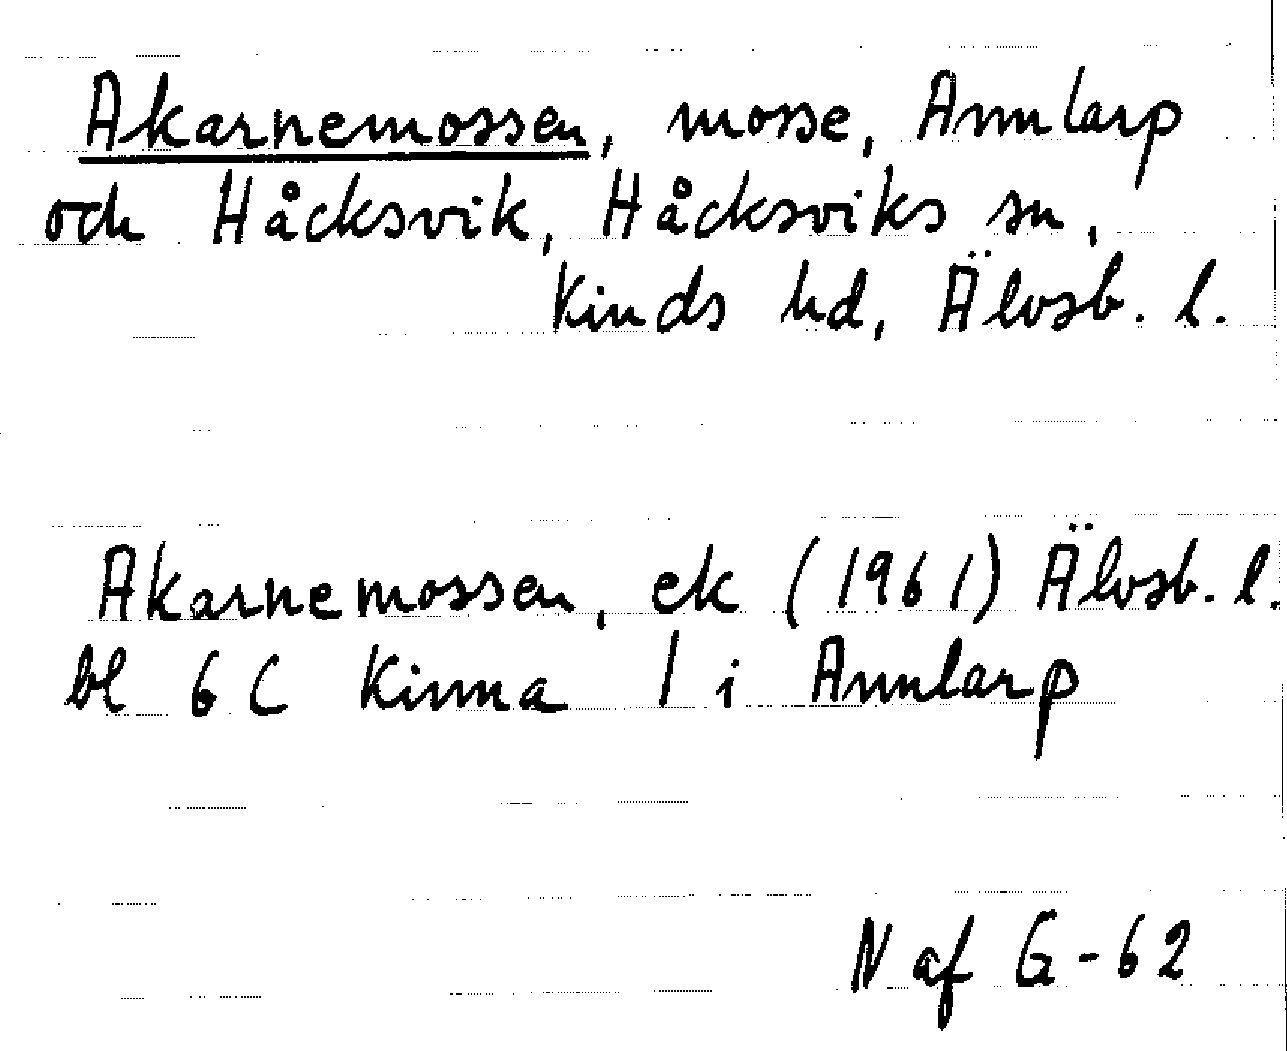 Akarnemossen, mosse, Annlarp
och Håcksvik, Håcksviks sn,
Kinds hd, Älvsb. l.
Akarnemossen, ek (1961) Älvsb. l.
bl 6 C Kinna 1 i Annlarp
N af G-62